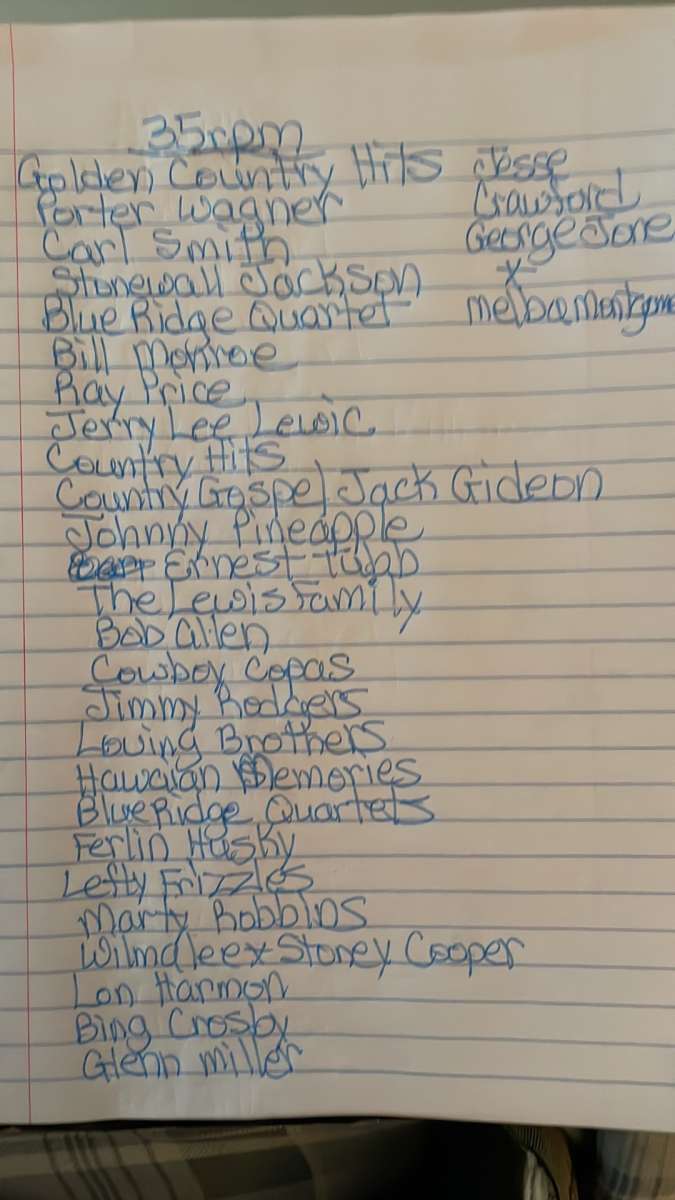 35rpm
Golden Country Hits
Porter Wagner
Carl Smith
Stonewall Jackson
Blue Ridge Quartet
Bill Monroe
Ray Price
Jerry Lee Lewic
Country Hits
Country Gospel Jack Gideon
Johnny Pineapple
Ernest Tubb
The Lewis Family
Bob Allen
Cowboy Copas
Jimmy Rodgers
Louing Brothers
Hawaian Memories
Blue Ridge Quartets
Ferlin Husky
Lefty Frizzles
Marty Robbins
Wilmalee + Stoney Cooper
Lon Harmon
Bing Crosby
Glenn Miller
Jesse
Crawford
George Jone
+
melba montgome